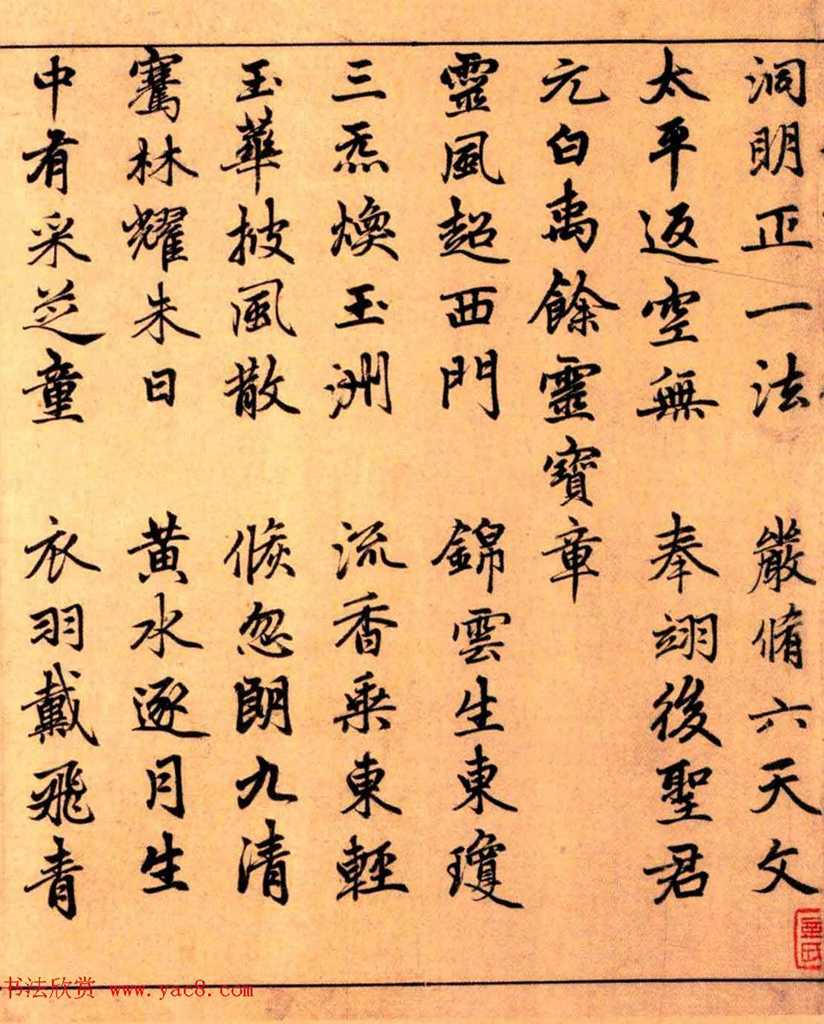 洞明正一法 嚴脩六天文
太平返空無 奉翊後聖君
元白禹餘靈寶章
靈風超西門 錦雲生東瓊
三炁煥玉洲 流香乘東輕
玉華披風散 倏忽朗九清
騫林耀朱日 黃水逐月生
中有采芝童 衣羽戴飛青
书法欣赏 www.yac8.com